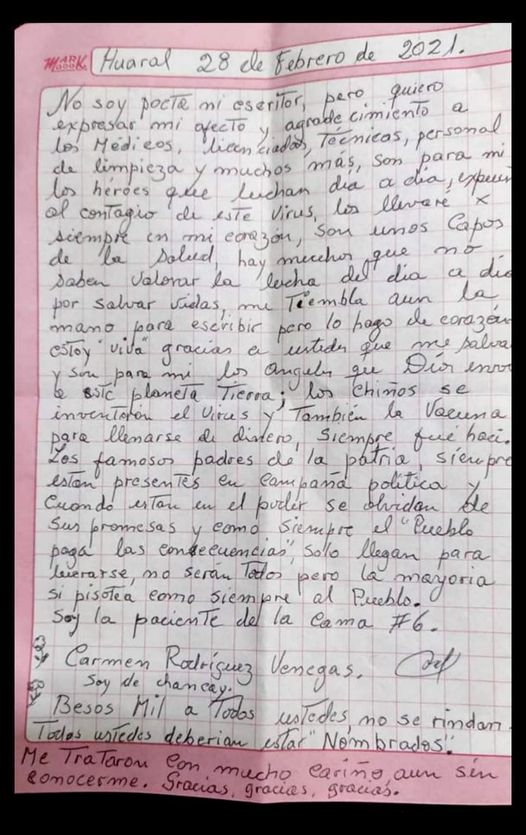 MARK BOOK
Huaral 28 de Febrero de 2021.
No soy poeta mi escritor, pero quiero
expresar mi afecto y agradecimiento a
los Médicos, licenciados, Técnicos, personal
de limpieza y muchos más, son para mi
los heroes que luchan dia a dia,
al contagio de este Virus, los llevare x
siempre en mi corazón, son unos Capos
de la Salud, hay muchos que no
saben valorar la lucha del dia a dia
por salvar vidas, me Tiembla aun la
mano para escribir pero lo hago de corazón
estoy "viva" gracias a ustedes que me salva
y son para mi los angeles que Dios envi
a este planeta Tierra; los Chinos se
inventaron el Virus y También la Vacuna
para llenarse de dinero, Siempre fué haci.
Los famosos padres de la patria, siempre
estan presentes en campaña politica y
Cuando estan en el poder se olvidan de
sus promesas y como Siempre el "Pueblo
paga las consecuencias", solo llegan para
lucrarse, no serán Todos pero la mayoria
si pisotea como siempre al Pueblo.
Soy la paciente de la Cama #6.
Carmen Rodríguez Venegas.
Soy de chancay.
Besos Mil a Todos ustedes, no se rindan
Todos ustedes deberian estar "Nombrados".
Me Trataron con mucho cariño, aun sin
conocerme. Gracias, gracias, gracias.